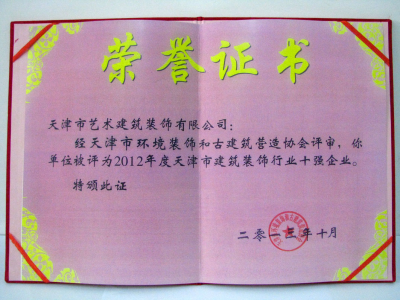 荣誉证书
天津市艺术建筑装饰有限公司：
经天津市环境装饰和古建筑营造协会评审，你
单位被评为2012年度天津市建筑装饰行业十强企业。
特颁此证
二零一三年十月